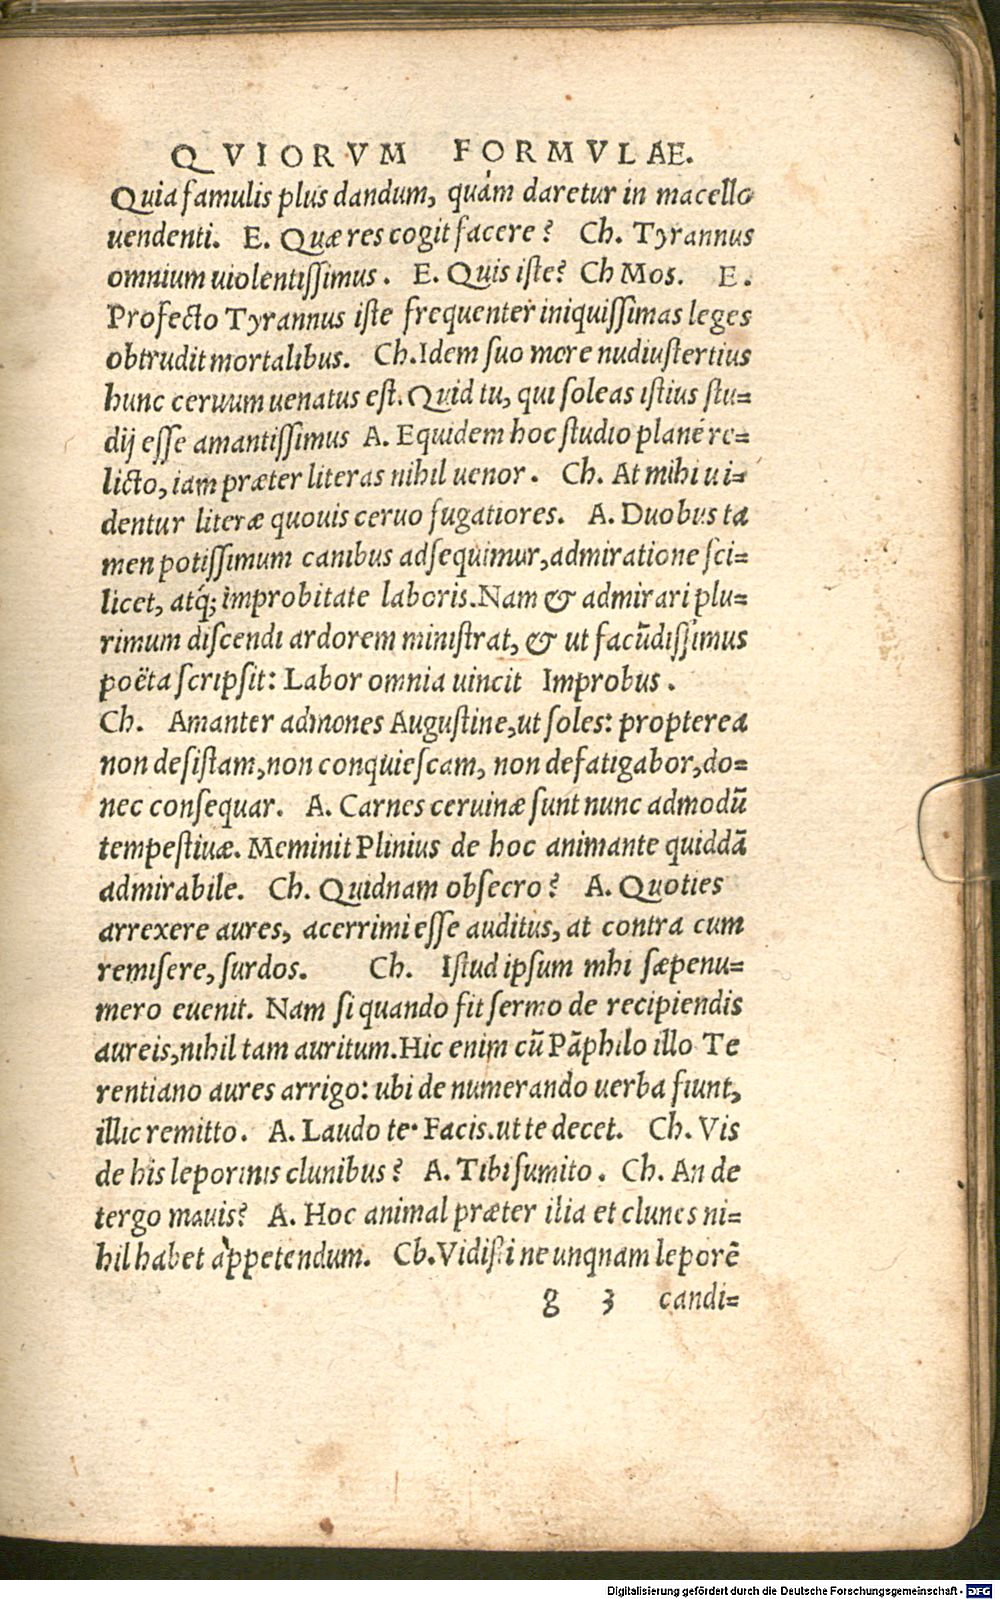 QVIORVM FORMVLAE.
Quia famulis plus dandum, quàm daretur in macello
uendenti. E. Quæ res cogit facere? Ch. Tyrannus
omnium uiolentissimus. E. Quis iste? Ch Mos. E.
Profecto Tyrannus iste frequenter iniquissimas leges
obtrudit mortalibus. Ch. Idem suo more nudiustertius
hunc ceruum uenatus est. Quid tu, qui soleas istius stu=
dij esse amantissimus A. Equidem hoc studio planè re=
licto, iam præter literas nihil uenor. Ch. At mihi ui=
dentur literæ quouis ceruo fugatiores. A. Duobus ta
men potissimum canibus adsequimur, admiratione sci=
licet, atq́; improbitate laboris. Nam & admirari plu=
rimum discendi ardorem ministrat, & ut facũdissimus
poëta scripsit: Labor omnia uincit Improbus.
Ch. Amanter admones Augustine, ut soles: propterea
non desistam, non conquiescam, non defatigabor, do=
nec consequar. A. Carnes ceruinæ sunt nunc admodũ
tempestiuæ. Meminit Plinius de hoc animante quiddã
admirabile. Ch. Quidnam obsecro? A. Quoties
arrexere aures, acerrimi esse auditus, at contra cum
remisere, surdos. Ch. Istud ipsum mhi sæpenu=
mero euenit. Nam si quando fit sermo de recipiendis
aureis, nihil tam auritum. Hic enim cũ Pãphilo illo Te
rentiano aures arrigo: ubi de numerando uerba fiunt,
illic remitto. A. Laudo te. Facis. ut te decet. Ch. Vis
de his leporinis clunibus? A. Tibi sumito. Ch. An de
tergo mauis? A. Hoc animal præter ilia et clunes ni=
hil habet appetendum. Cb. Vidisti ne unqnam leporẽ
g 3 candi=
Digitalisierung gefördert durch die Deutsche Forschungsgemeinschaft - DFG